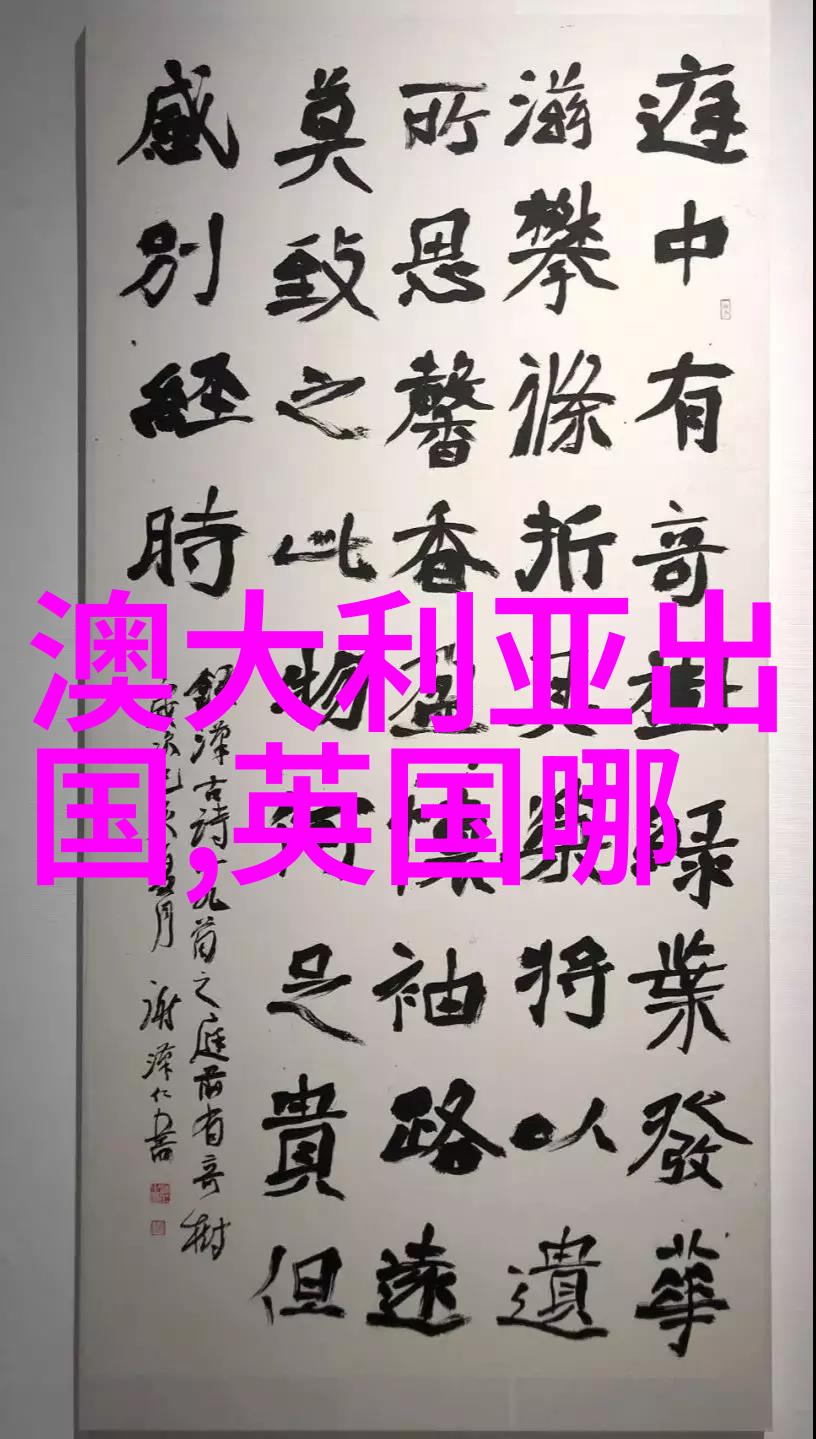 澳大利亚出
国,英国哪
庭中有奇樹綠葉發華
滋攀條折其榮將以遺
所思馨香盈懷袖路遠
莫致之此物何足貴但
感別經時
錄漢古詩十九首之庭前有奇樹
月 謝 仁書